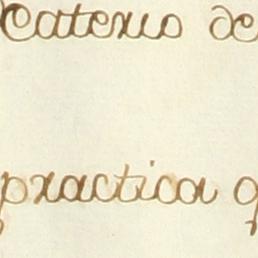 Caterio de
practica q